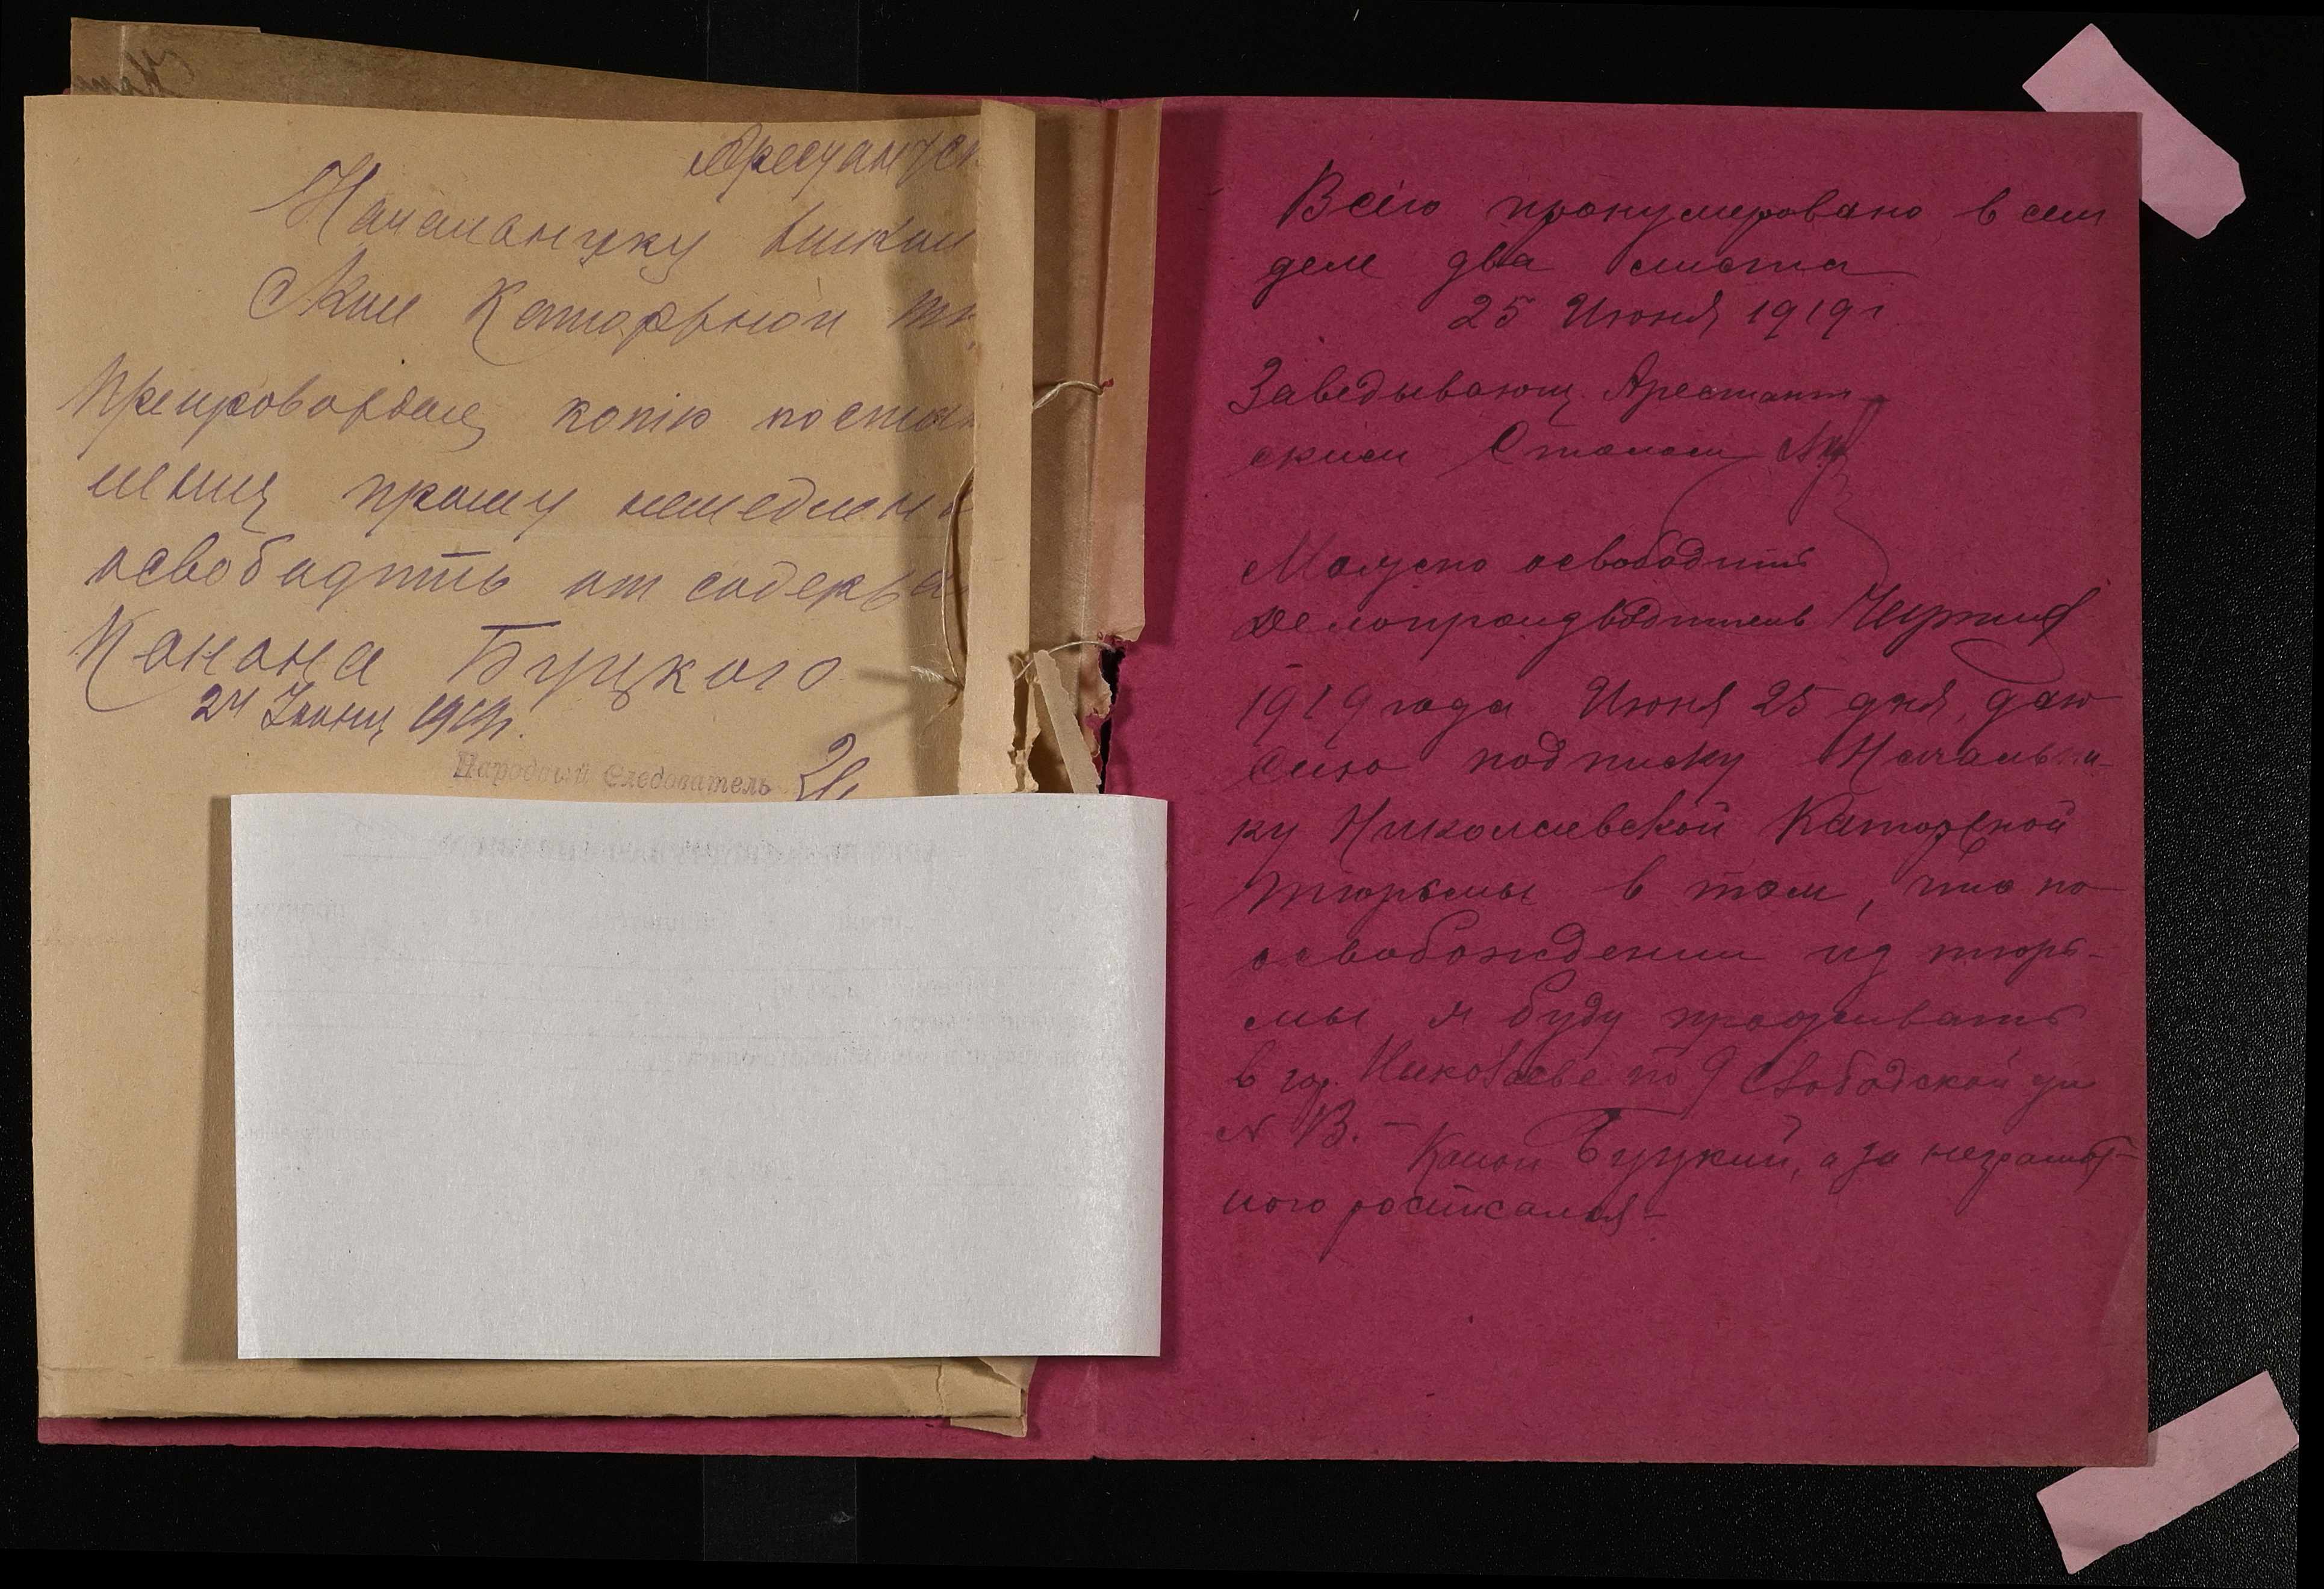 Арестантск
Начальнику Никол
Ской Каторжной тю
Препровождая копію постан
ления прошу немедленн
освободить от содержа
Канона Буцкого
24 Июня 1919г.
Народный Следователь
Всего пронумеровано в сем
деле два листа
25 Июня 1919 г
Заведывающ. Арестант
ским Столом
Можно освободить
Делопроизводитель
1919 года Июня 25 дня, даю
Сию подписку Начальни-
ку Николаевской Каторжной
тюрьмы в том, что по
освобождении из тюрь-
мы я буду проживать
в гор. Николаеве по 9 Слободской ул
№ 13. - Канон Буцкий, а за неграмот-
ного росписался -